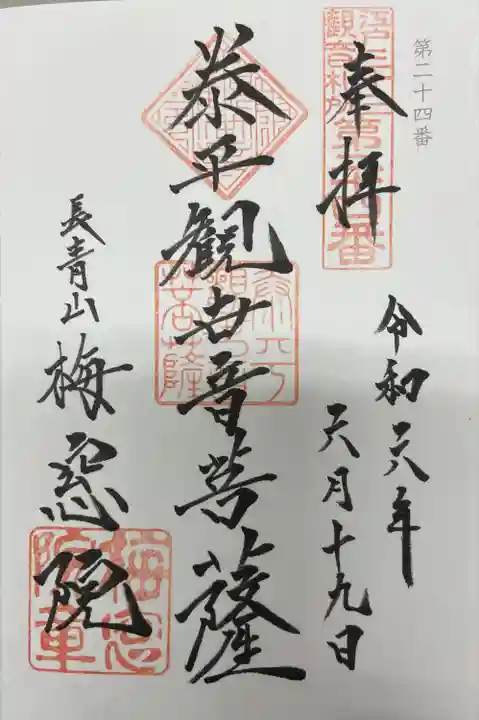 第二十四番
奉拝
令和六年
六月十九日
泰平観世音菩薩
長青山梅窓院